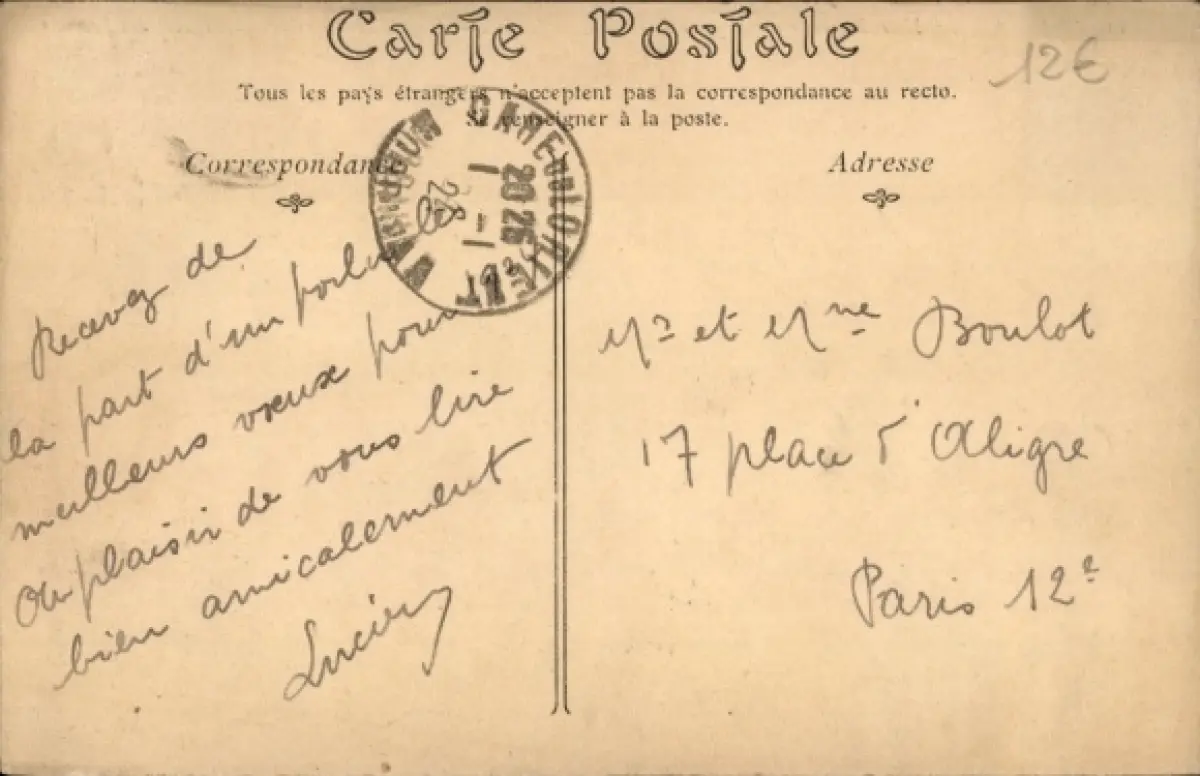 Carte Postale
12€
Tous les pays étrangers n'acceptent pas la correspondance au recto.
Se renseigner à la poste.
Correspondance
Adresse
Recevez de
la part d'un poilu les
meilleurs vœux pour
Au plaisir de vous lire
bien amicalement
Lucien
Mr et Mme Boulot
17 place d'Aligre
Paris 12e